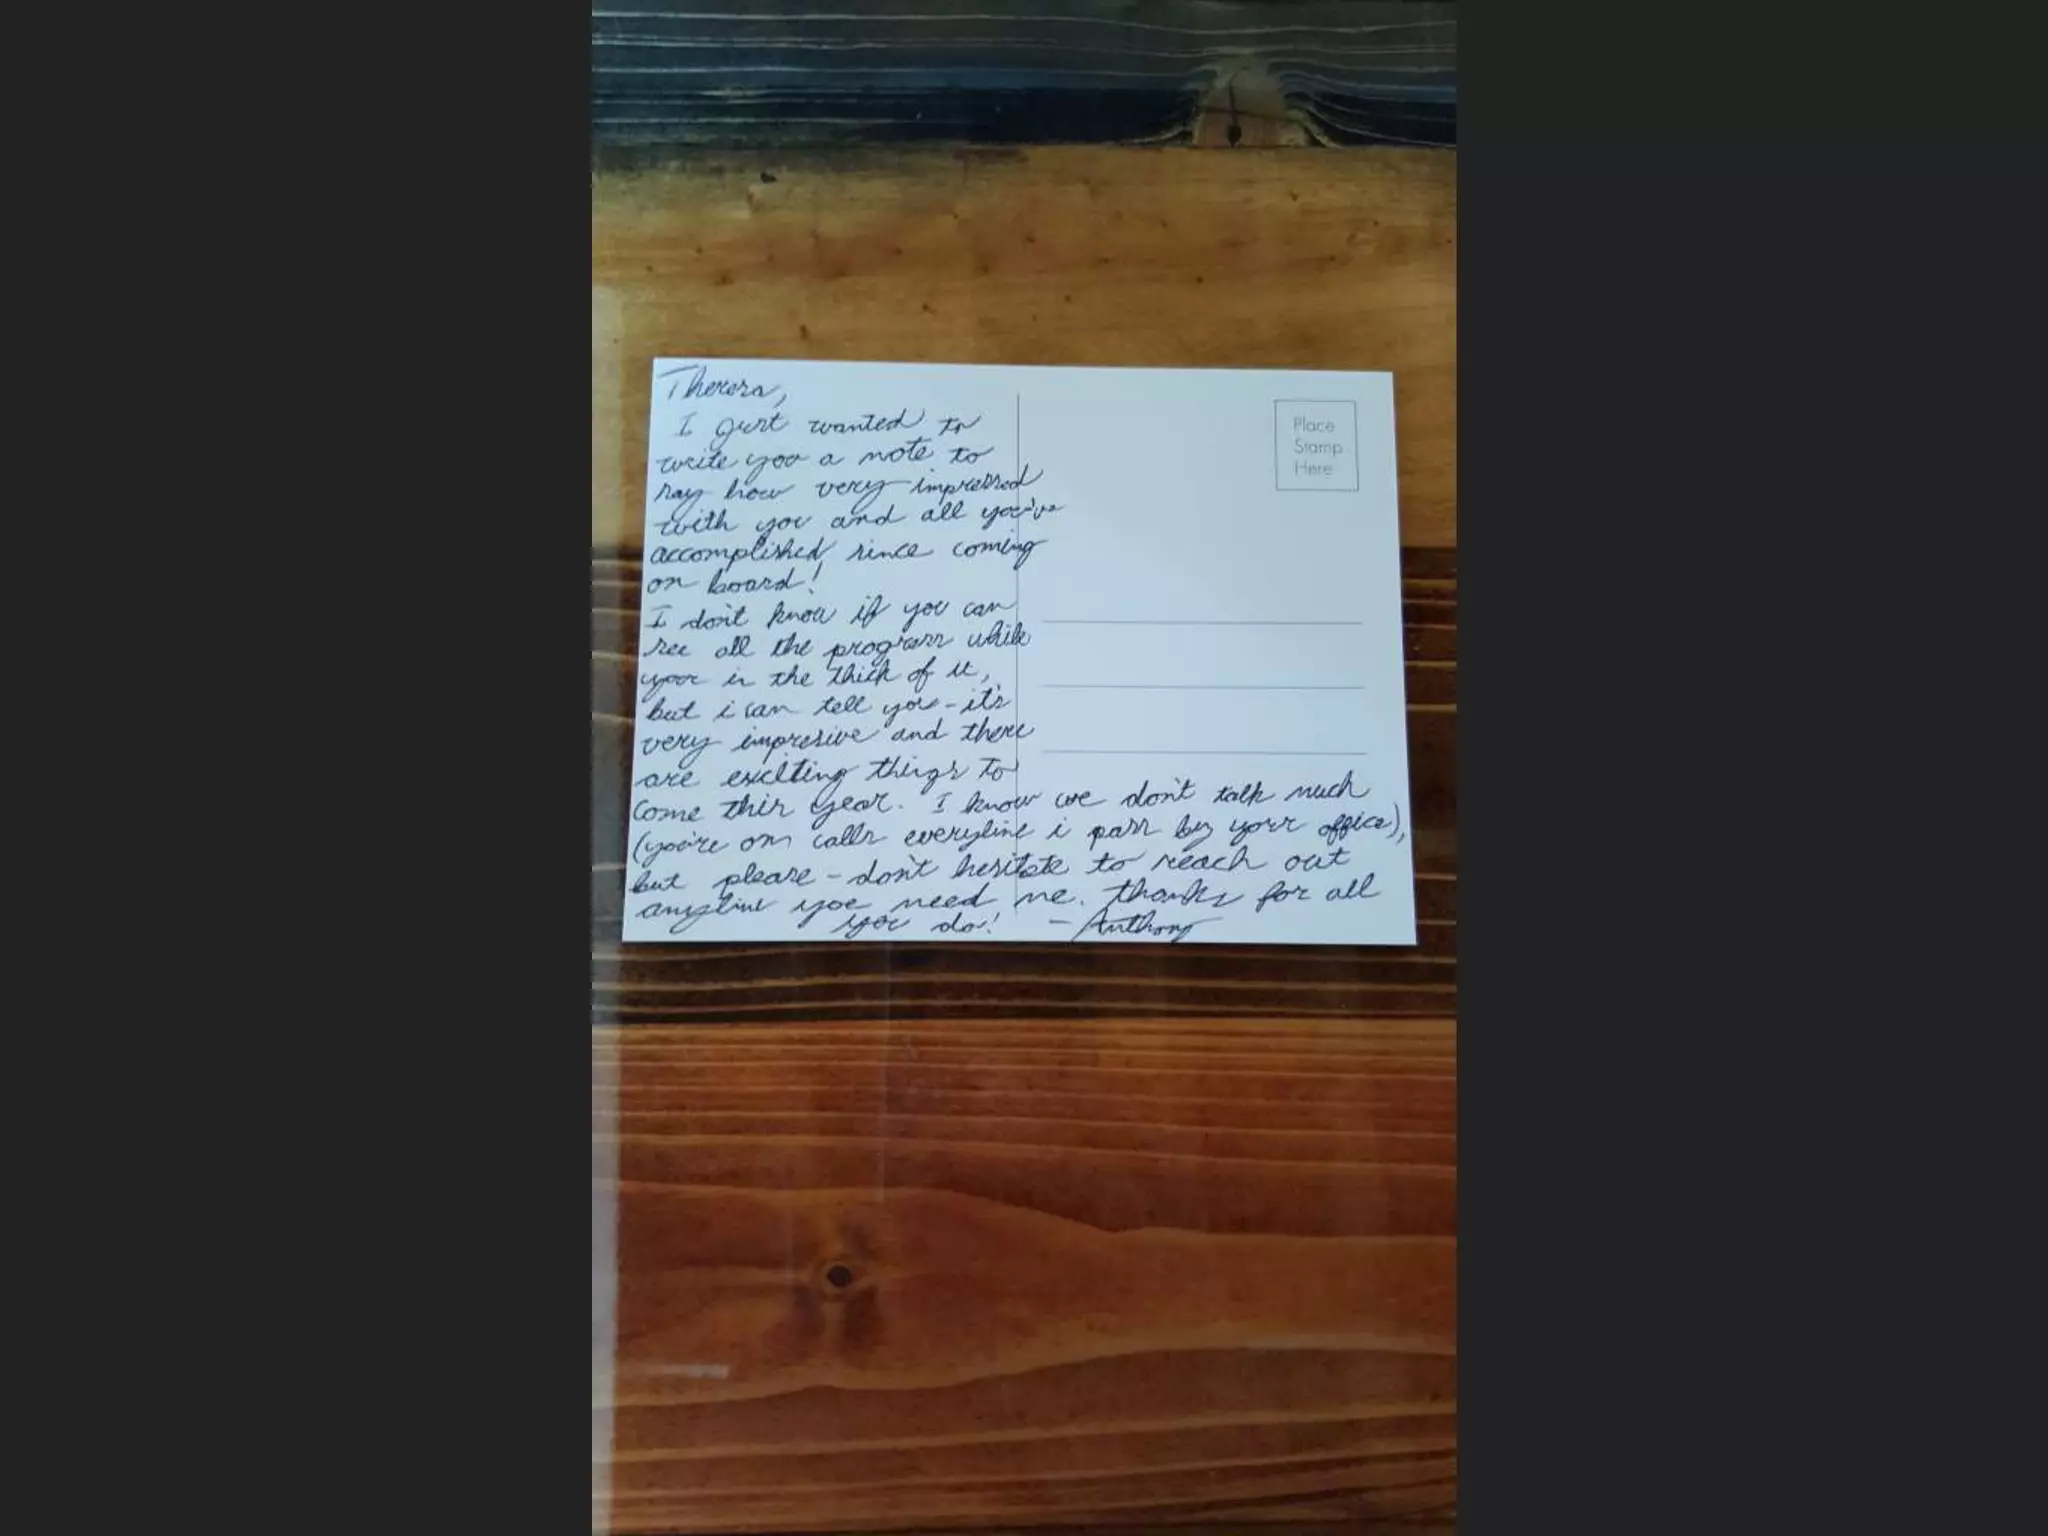 Theresa,
I just wanted to
write you a note to
say how very impressed
with you and all you've
accomplished since coming
on board!
I don't know if you can
see all the progress while
your in the thick of it,
but i can tell you - it's
very impresive and there
are exciting things to
come this year. I know we don't talk much
(you're on calls everytime i pass by your office),
but please - don't hesitate to reach out
anytime you need me. thanks for all
you do! - Anthony
Place
Stamp
Here